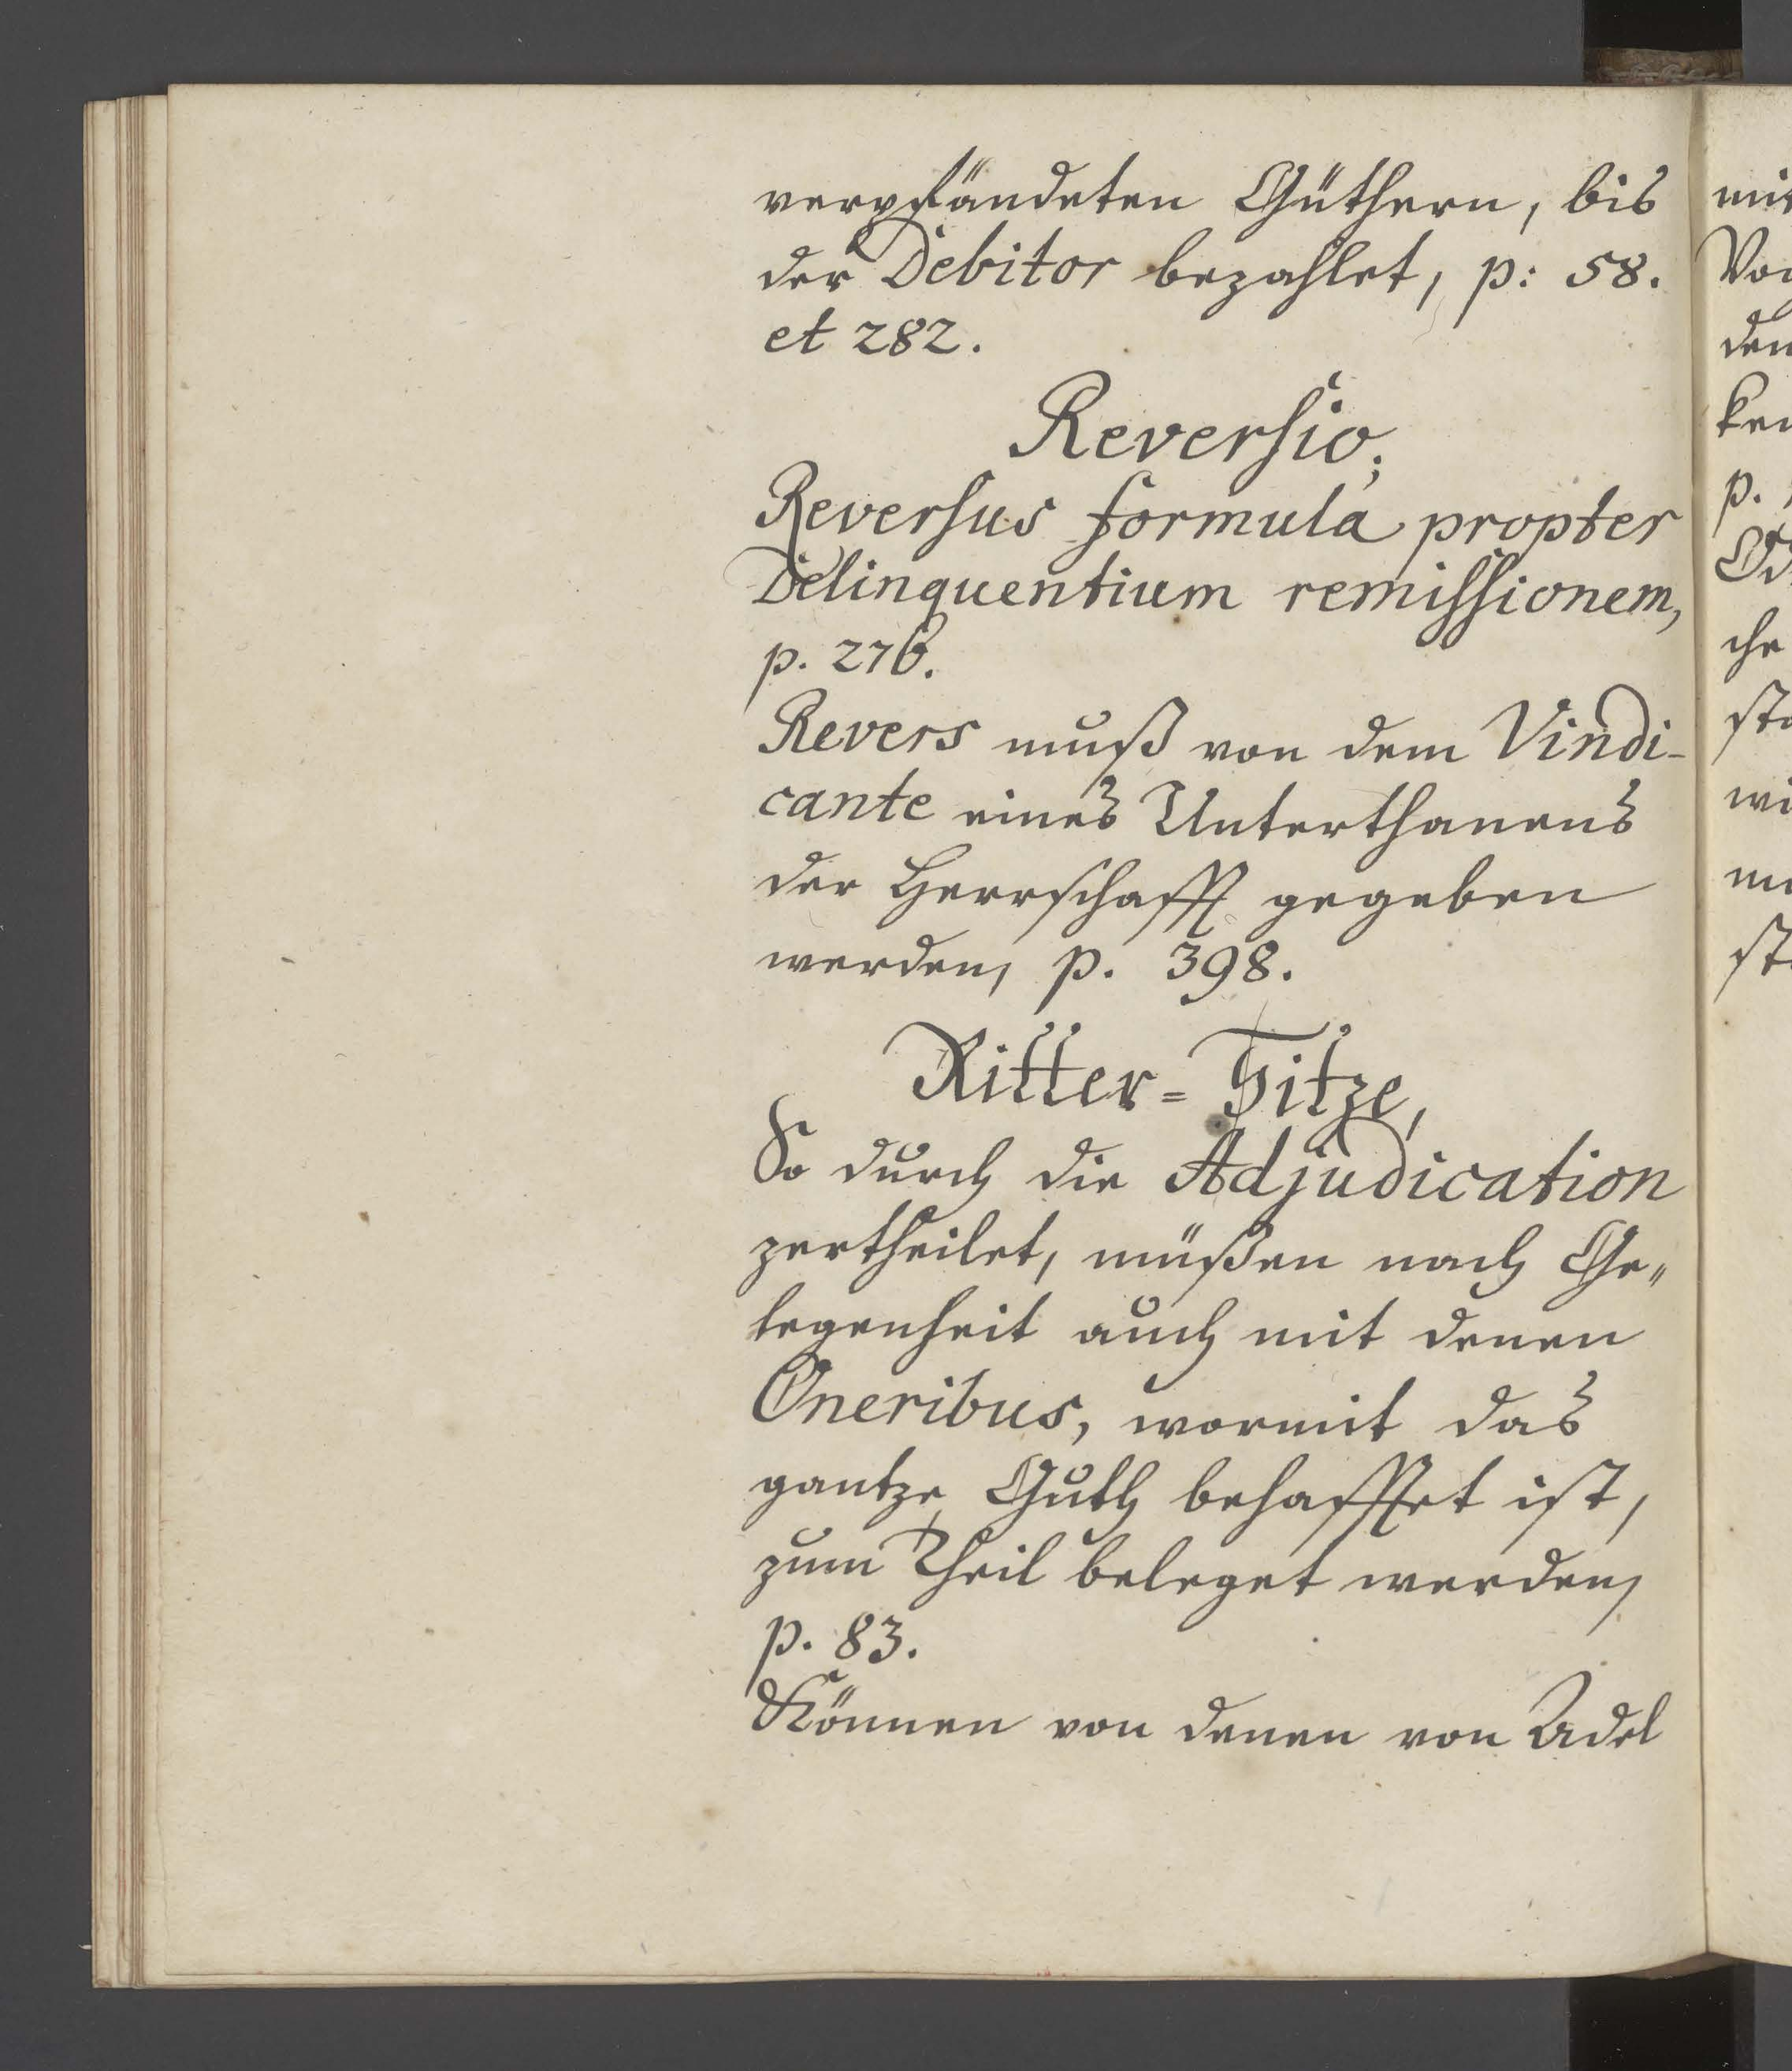 verpfändeten Güthern, bis
der Debitor bezahlet, p: 58.
et 282.
Reversio;
Reversus formula propter
Delinquentium remissionem,
p. 276.
Revers muß von dem Vindi-
cante eines Unterthanens
der Herrschafft gegeben
werden, p. 398.
Ritter= Sitze,
So durch die Adjudication
zertheilet, müßen nach Ge„
legenheit auch mit denen
Oneribus, wormit das
gantze Guth behafftet ist,
zum Theil beleget werden,
p. 83.
Können von denen von Adel